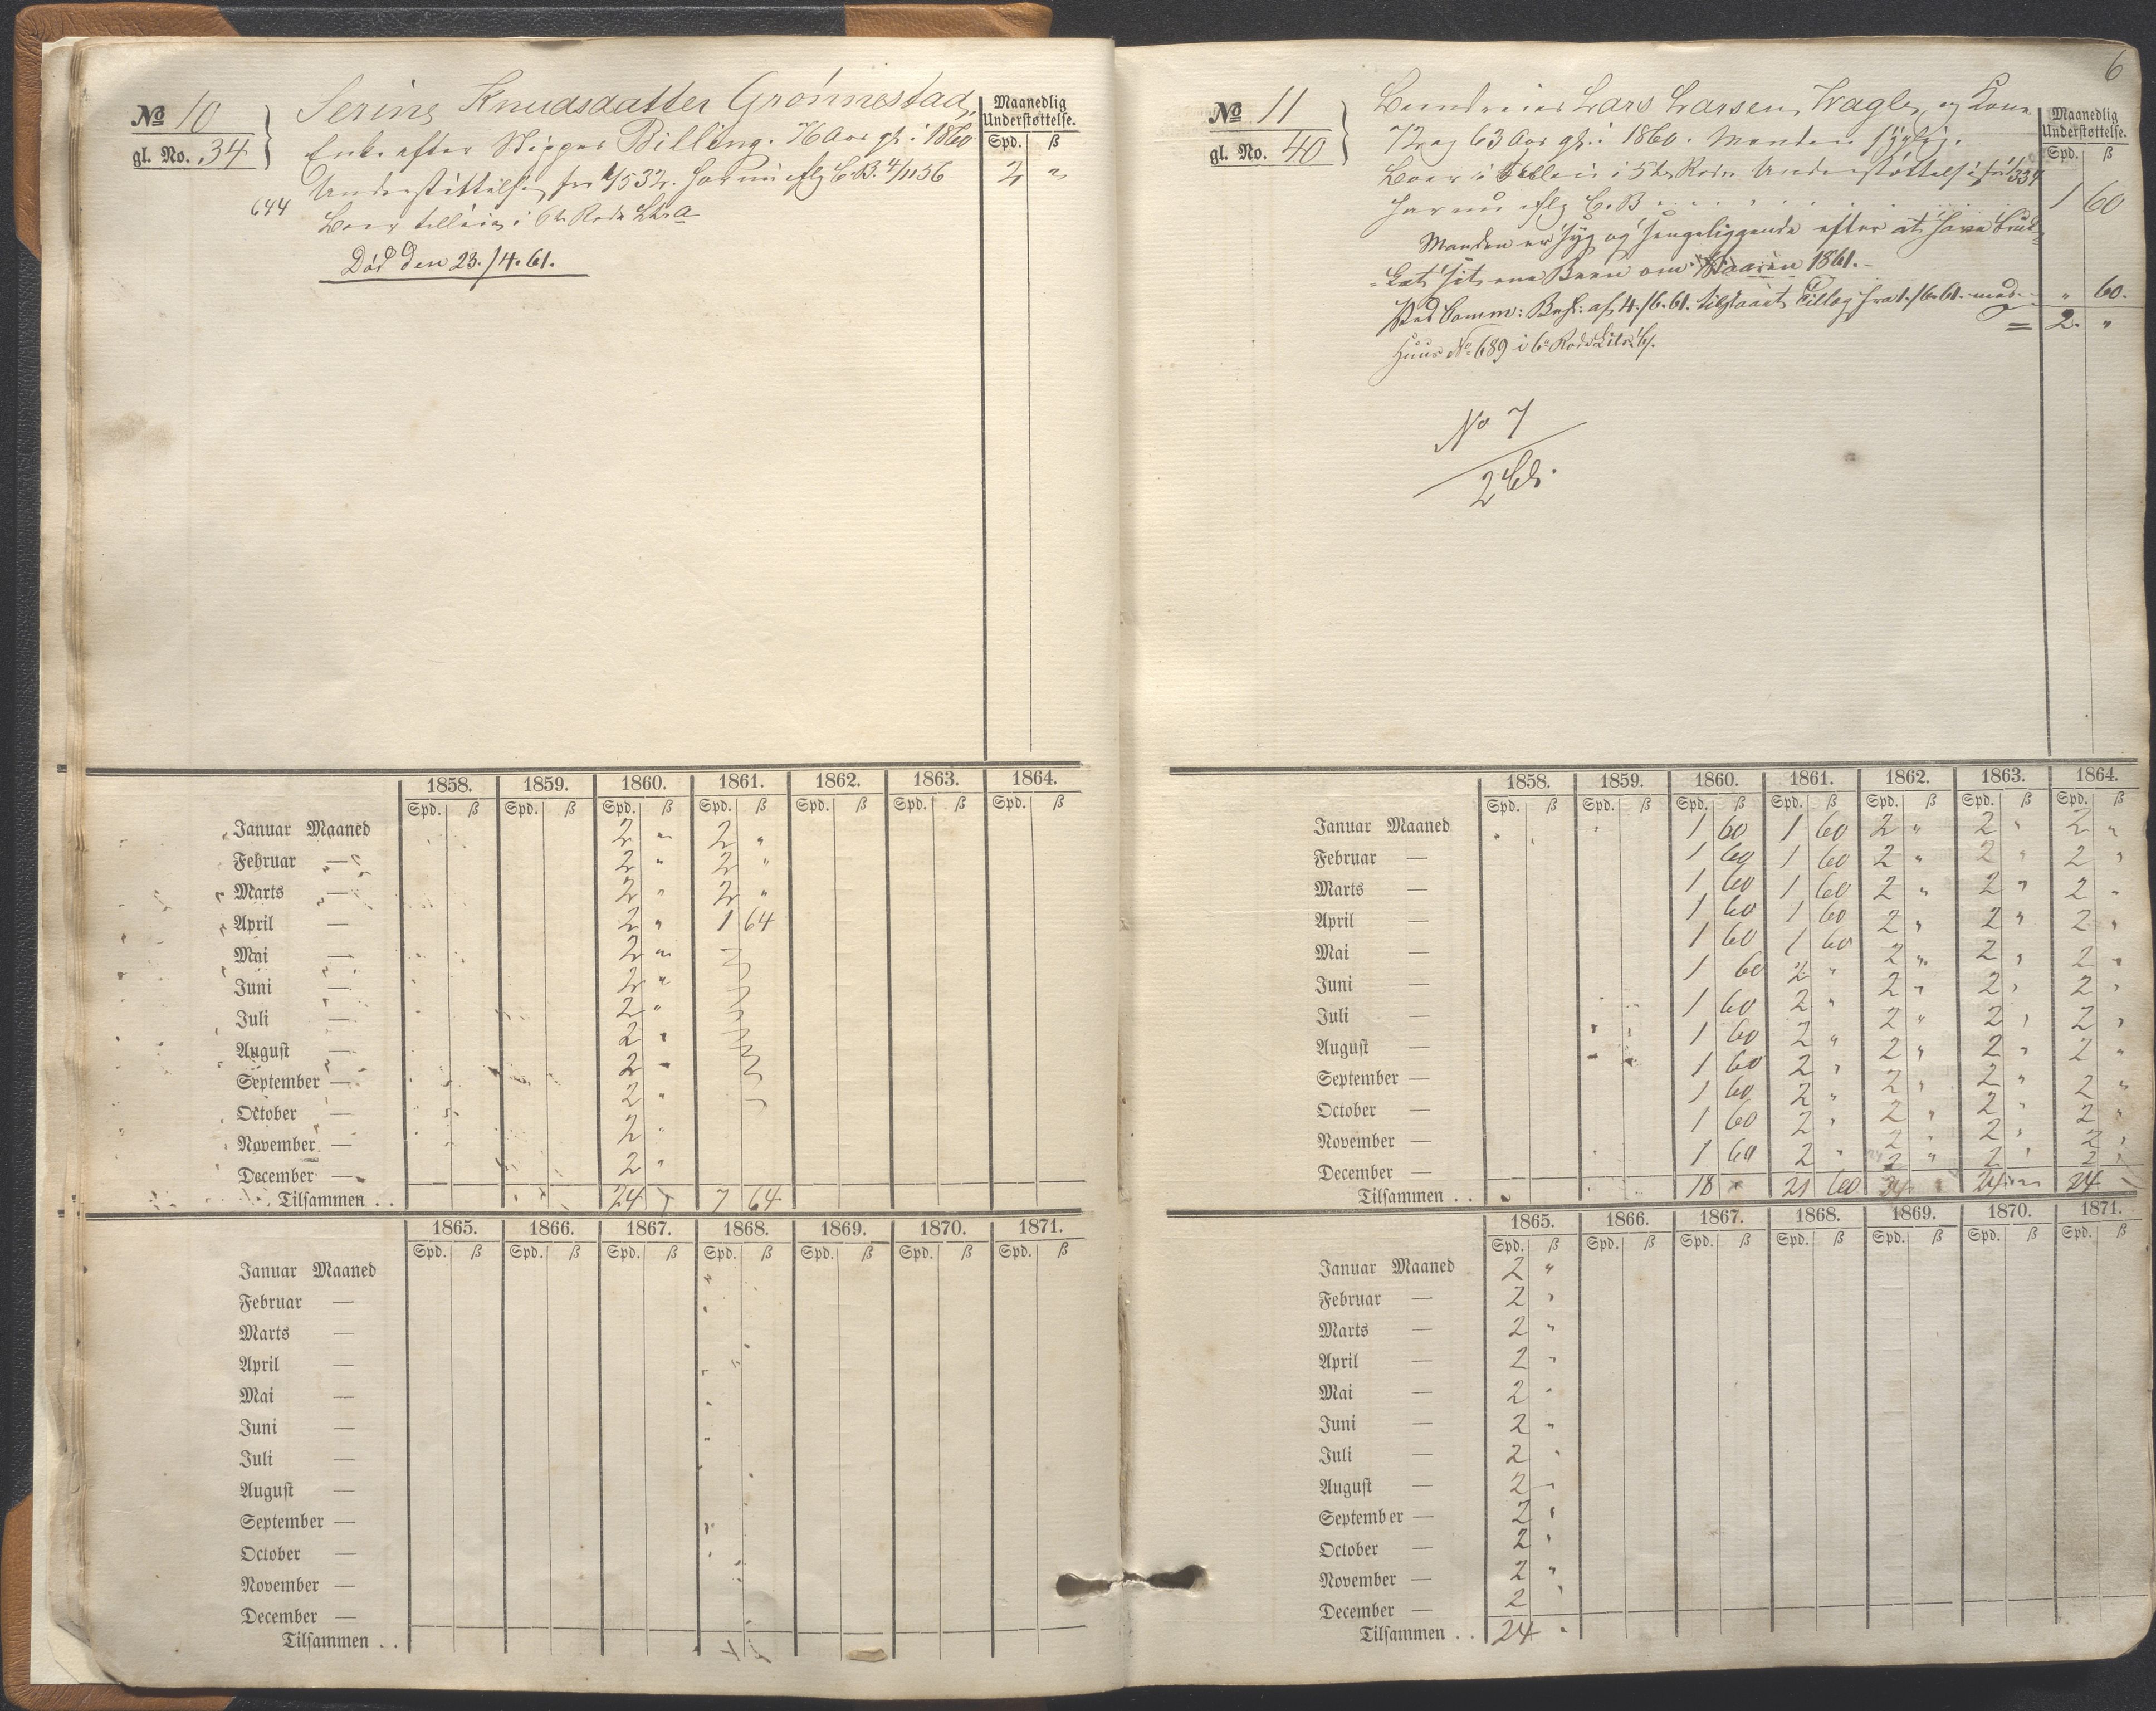 No 10
gl. No. 34
Serine Knudsdatter Grønnestad,
Enke efter Skipper Billing. 76 Aar gl. i 1860
Understøttelse fra 1/5 32. Har nu iflg C.B. 4/11 56
644 Boer tilleie i 6te Rode Ltr a
Død den 23./4. 61.
Maanedlig
Understøttelse.
Spd. ß
2 "
1858. 1859. 1860. 1861. 1862. 1863. 1864.
Spd. ß Spd. ß Spd. ß Spd. ß Spd. ß Spd. ß Spd. ß
Januar Maaned 2 " 2 "
Februar — 2 " 2 "
Marts — 2 " 2 "
April — 2 " 1 64
Mai — 2 "
Juni — 2 "
Juli — 2 "
August — 2 "
September — 2 "
October — 2 "
November — 2 "
December — 2 "
Tilsammen . . 24 " 7 64
1865. 1866. 1867. 1868. 1869. 1870. 1871.
Spd. ß Spd. ß Spd. ß Spd. ß Spd. ß Spd. ß Spd. ß
Januar Maaned
Februar —
Marts —
April —
Mai —
Juni —
Juli —
August —
September —
October —
November —
December —
Tilsammen . .
6
No 11
gl. No. 40
Lars Larsen Wagle, og Kone
72 og 63 Aar gl. i 1860. Manden sygelig.
Boer i 5te Rode Understøttelse
Har nu iflg C.B . . . . .
Manden er syg og sengeliggende efter at have bræk-
ket sit ene Been om Vaaren 1861.
Ved Comm: Besl. af 4./6. 61. tilstaaet Tillæg fra 1./6. 61. med
Huus No 689 i 6te Rode Litr: b.
No 7
Maanedlig
Understøttelse.
Spd. ß
1 60
" 60.
= 2. "
1858. 1859. 1860. 1861. 1862. 1863. 1864.
Spd. ß Spd. ß Spd. ß Spd. ß Spd. ß Spd. ß Spd. ß
Januar Maaned 1 60 1 60 2 " 2 " 2 "
Februar — 1 60 1 60 2 " 2 " 2 "
Marts — 1 60 1 60 2 " 2 " 2 "
April — 1 60 1 60 2 " 2 " 2 "
Mai — 1 60 1 60 2 " 2 " 2 "
Juni — 1 60 2 " 2 " 2 " 2 "
Juli — 1 60 2 " 2 " 2 " 2 "
August — 1 60 2 " 2 " 2 " 2 "
September — 1 60 2 " 2 " 2 " 2 "
October — 1 60 2 " 2 " 2 " 2 "
November — 1 60 2 " 2 " 2 " 2 "
December — 1 60 2 " 2 " 2 " 2 "
Tilsammen . . 18 " 21 60 24 " 24 " 24 "
1865. 1866. 1867. 1868. 1869. 1870. 1871.
Spd. ß Spd. ß Spd. ß Spd. ß Spd. ß Spd. ß Spd. ß
Januar Maaned 2 "
Februar — 2 "
Marts — 2 "
April — 2 "
Mai — 2 "
Juni — 2 "
Juli — 2 "
August — 2 "
September — 2 "
October — 2 "
November — 2 "
December — 2 "
Tilsammen . . 24 "